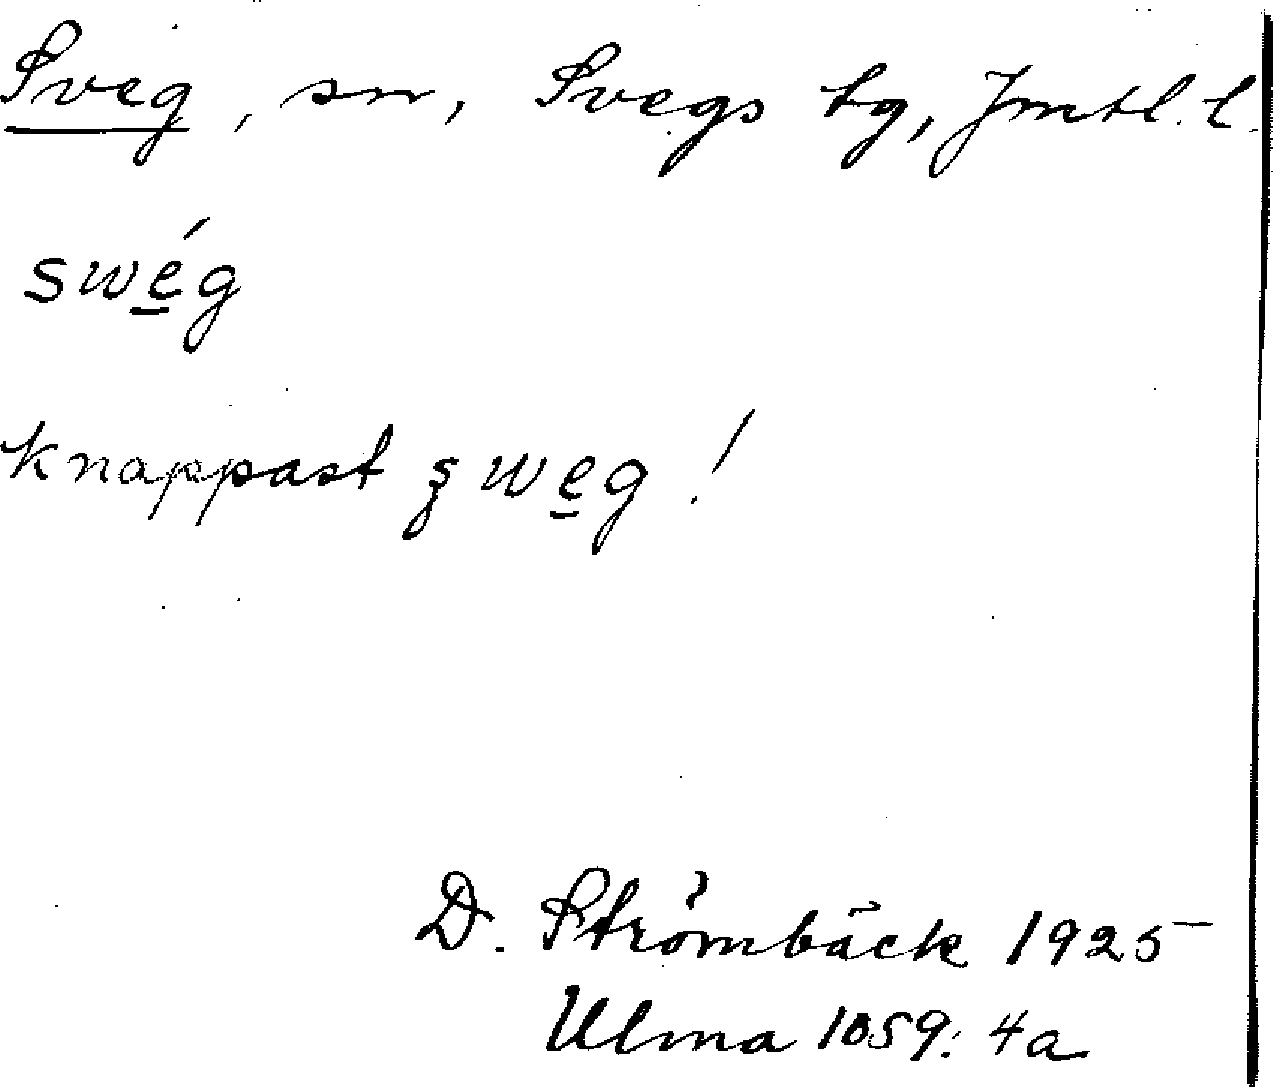 Sveg, sn, Svegs tg, Jmtl. l.
swé̲g
knappast s̨we̲g!
D. Strömbäck 1925
Ulma 1059: 4a